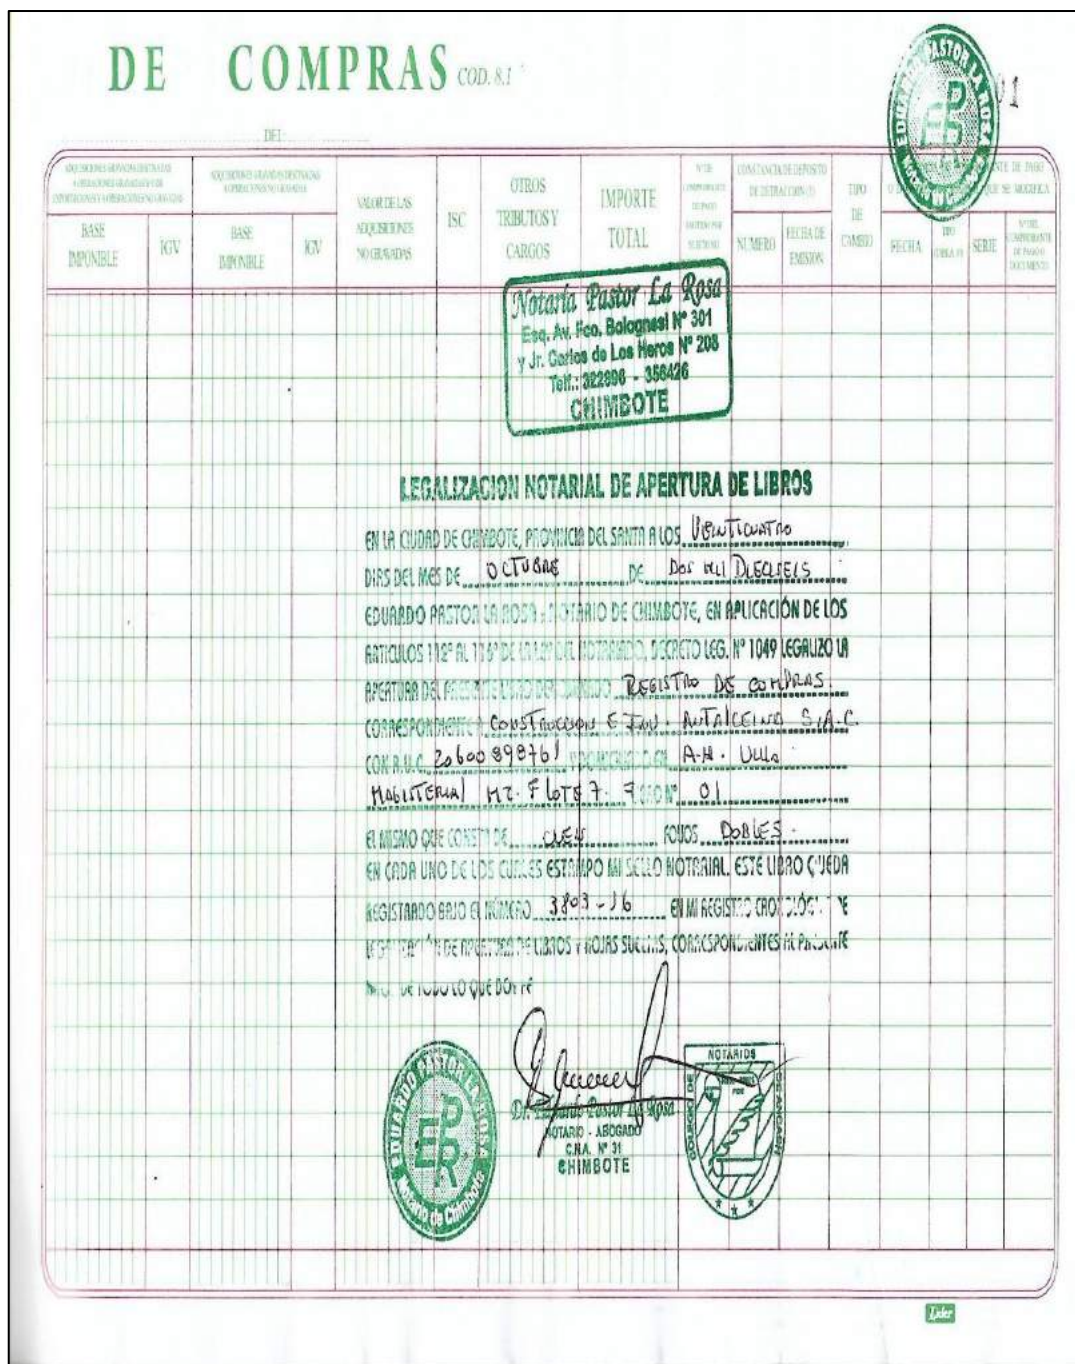 DE COMPRAS COD. 8.1
01
DEL
EDUARDO PASTOR LA ROSA
EPR
ADQUISICIONES GRAVADAS DESTINADAS
ADQUISICIONES GRAVADAS DESTINADAS
BASE IMPONIBLE
IGV
BASE IMPONIBLE
IGV
VALOR DE LAS ADQUISICIONES NO GRAVADAS
ISC
OTROS TRIBUTOS Y CARGOS
IMPORTE TOTAL
CONSTANCIA DE DEPOSITO DE DETRACCION (3)
NUMERO
FECHA DE EMISION
TIPO DE CAMBIO
NTE DE PAGO
QUE SE MODIFICA
FECHA
TIPO
SERIE
Nº DEL COMPROBANTE DE PAGO O DOCUMENTO
Notaría Pastor La Rosa
Esq. Av. Fco. Bolognesi Nº 301
y Jr. Carlos de Los Heros Nº 208
Telf.: 322896 - 356426
CHIMBOTE
LEGALIZACION NOTARIAL DE APERTURA DE LIBROS
EN LA CIUDAD DE CHIMBOTE, PROVINCIA DEL SANTA A LOS Veinticuatro
DIAS DEL MES DE OCTUBRE DE Dos Mil Dieciseis
EDUARDO PASTOR LA ROSA - NOTARIO DE CHIMBOTE, EN APLICACIÓN DE LOS
ARTICULOS 112º AL 116º DE LA LEY DEL NOTARIADO, DECRETO LEG. Nº 1049 LEGALIZO LA
APERTURA DEL PRESENTE LIBRO DENOMINADO REGISTRO DE COMPRAS.
CORRESPONDIENTE A CONSTRUCCION E INV. ANTALCEINO S.A.C.
CON R.U.C. 20600898761 Y DOMICILIADO EN A.H. Villa
MAGISTERIAL MZ. F LOTE 7. Nº 01
EL MISMO QUE CONSTA DE CIEN FOLIOS DOBLES.
EN CADA UNO DE LOS CUALES ESTAMPO MI SELLO NOTARIAL. ESTE LIBRO QUEDA
REGISTRADO BAJO EL NÚMERO 3803-16 EN MI REGISTRO CRONOLÓGICO DE
LEGALIZACIÓN DE APERTURA DE LIBROS Y HOJAS SUELTAS, CORRESPONDIENTES AL PRESENTE
DE TODO LO QUE DOY FÉ
EDUARDO PASTOR LA ROSA
EPR
Notario de Chimbote
Dr. Eduardo Pastor La Rosa
NOTARIO - ABOGADO
C.N.A. Nº 31
CHIMBOTE
NOTARIOS
DE ANCASH
Lider